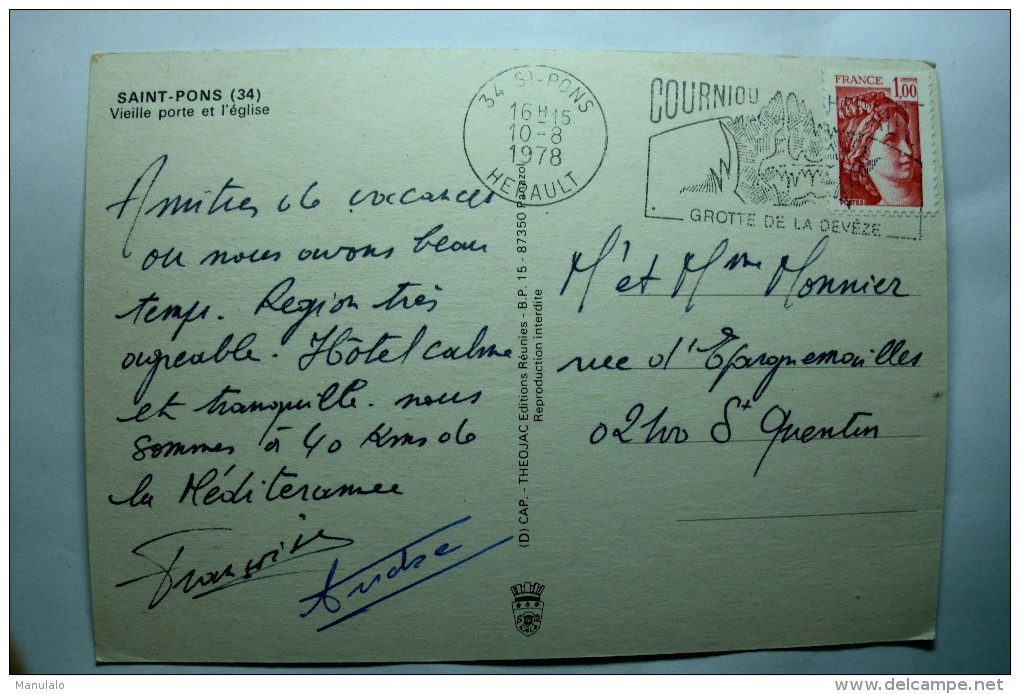 SAINT-PONS (34)
Vieille porte et l'église
34 St-PONS
16H15
10-8
1978
HERAULT
COURNIOU
GROTTE DE LA DEVÈZE
FRANCE 1,00
Amitiés de vacances
où nous avons beau
temps. Région très
agréable. Hôtel calme
et tranquille. nous
sommes à 40 Kms de
la Méditerannee
Françoise
André
(D) CAP. - THEOJAC Editions Réunies - B.P. 15 - 87350 Panazol
Reproduction interdite
Mr et Mme Monnier
rue d'Epargnemailles
02100 St Quentin
Manulalo
delcampe.net